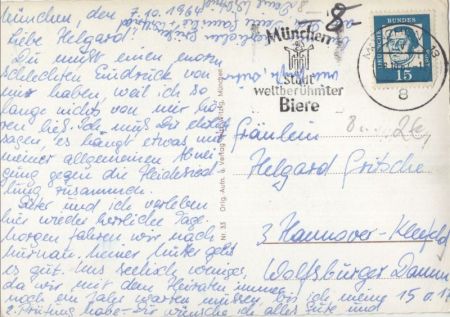 München, den 7.10.1964
Liebe Helgard!
Du mußt einen enorm
schlechten Eindruck von
mir haben, weil ich so
lange nichts von mir hö-
ren ließ. Ich muß Dir ehrlich
sagen, es hängt etwas mit
meiner allgemeinen Abnei-
gung gegen die
zusammen.
und ich verleben
hier wieder herrliche Tage.
Morgen fahren wir nach
Murnau. Meiner Mutter geht
es gut. Uns seelisch weniger,
da wir mit dem Heiraten immer
noch ein Jahr warten müssen, bis ich meine
2. Prüfung habe. Wir wünschen Dir alles Gute und
Nr. 35 Orig.-Aufn. u. Verlag München
München
Stadt
weltberühmter
Biere
DEUTSCHE
BUNDESPOST
15
8
Fräulein
Helgard Fritsche
3 Hannover-Kleefeld
Wolfsburger Damm
15